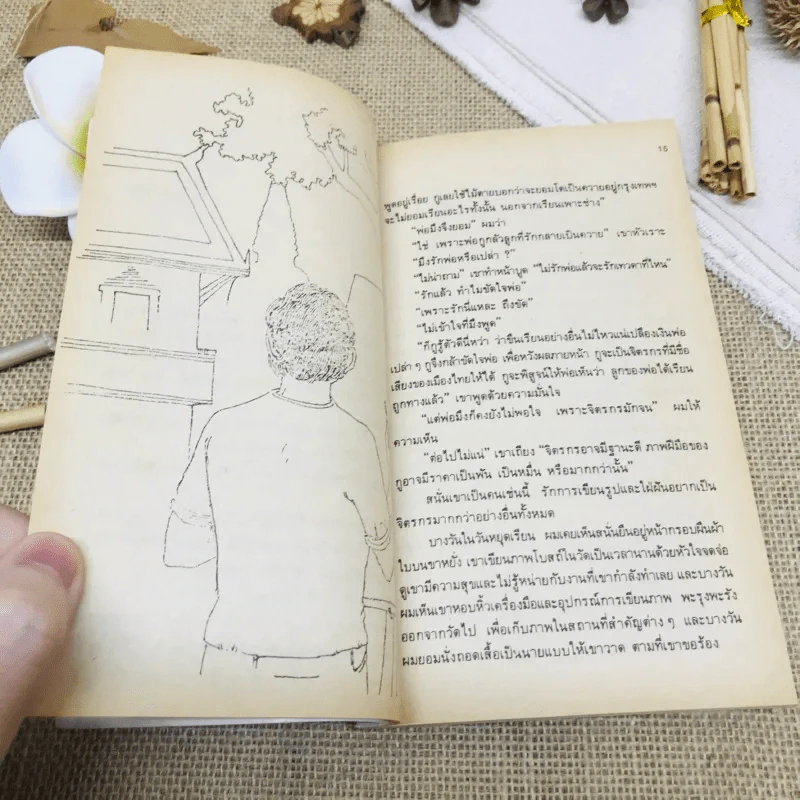 15
พูดอยู่เรื่อย กูเลยใช้ไม้ตายบอกว่าจะยอมโตเป็นควายอยู่กรุงเทพฯ
จะไม่ยอมเรียนอะไรทั้งนั้น นอกจากเรียนเพาะช่าง”
“พ่อมึงจึงยอม” ผมว่า
“ใช่ เพราะพ่อกูกลัวลูกที่รักกลายเป็นควาย” เขาหัวเราะ
“มึงรักพ่อหรือเปล่า ?”
“ไม่น่าถาม” เขาทำหน้าบูด “ไม่รักพ่อแล้วจะรักเทวดาที่ไหน”
“รักแล้ว ทำไมขัดใจพ่อ”
“เพราะรักนี่แหละ ถึงขัด”
“ไม่เข้าใจที่มึงพูด”
“ก็กูรู้ตัวดีนี่หว่า ว่าขืนเรียนอย่างอื่นไม่ไหวแน่เปลืองเงินพ่อ
เปล่า ๆ กูจึงกล้าขัดใจพ่อ เพื่อหวังผลภายหน้า กูจะเป็นจิตรกรที่มีชื่อ
เสียงของเมืองไทยให้ได้ กูจะพิสูจน์ให้พ่อเห็นว่า ลูกของพ่อได้เรียน
ถูกทางแล้ว” เขาพูดด้วยความมั่นใจ
“แต่พ่อมึงก็คงยังไม่พอใจ เพราะจิตรกรมักจน” ผมให้
ความเห็น
“ต่อไปไม่แน่” เขาเถียง “จิตรกรอาจมีฐานะดี ภาพฝีมือของ
กูอาจมีราคาเป็นพัน เป็นหมื่น หรือมากกว่านั้น”
สนั่นเขาเป็นคนเช่นนี้ รักการเขียนรูปและใฝ่ฝันอยากเป็น
จิตรกรมากกว่าอย่างอื่นทั้งหมด
บางวันในวันหยุดเรียน ผมเคยเห็นสนั่นยืนอยู่หน้ากรอบผืนผ้า
ใบบนขาหยั่ง เขาเขียนภาพโบสถ์ในวัดเป็นเวลานานด้วยหัวใจจดจ่อ
ดูเขามีความสุขและไม่รู้หน่ายกับงานที่เขากำลังทำเลย และบางวัน
ผมเห็นเขาหอบหิ้วเครื่องมือและอุปกรณ์การเขียนภาพ พะรุงพะรัง
ออกจากวัดไป เพื่อเก็บภาพในสถานที่สำคัญต่าง ๆ และบางวัน
ผมยอมนั่งถอดเสื้อเป็นนายแบบให้เขาวาด ตามที่เขาขอร้อง